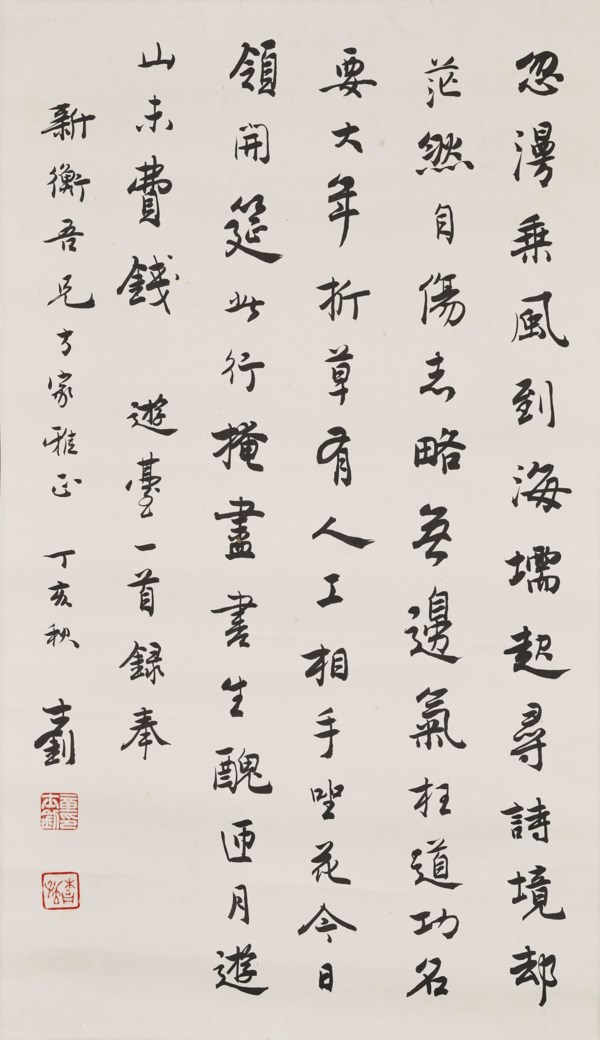 忽漫乘風到海壖起尋詩境却
茫然自傷志略無邊氣枉道功名
要大年折草有人工相手坐花今日
領開筵此行掩盡書生醜匝月遊
山未費錢 遊臺一首録奉
新衡吾兄方家雅正 丁亥秋 士釗